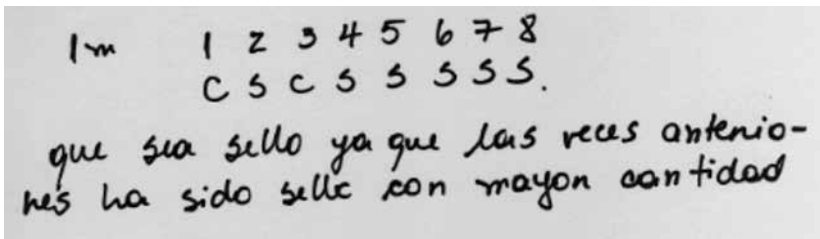 1m 1 2 3 4 5 6 7 8
C S C S S S S S.
que sea sello ya que las veces anterio-
res ha sido sello con mayor cantidad